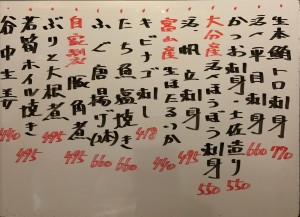 生本鮪トロ刺身 770
活〆平目刺身 660
かつお刺身・土佐造り 550
大分産 活〆ほうぼう刺身 550
活〆帆立刺し 495
富山産 生ほたるいか 440
キビナゴ刺し 418
たち魚塩焼き 660
ふぐ唐揚げ(5本) 660
自家製 豚角煮 495
ぶりと大根煮 495
若筍ホイル焼き 495
谷中生姜 440